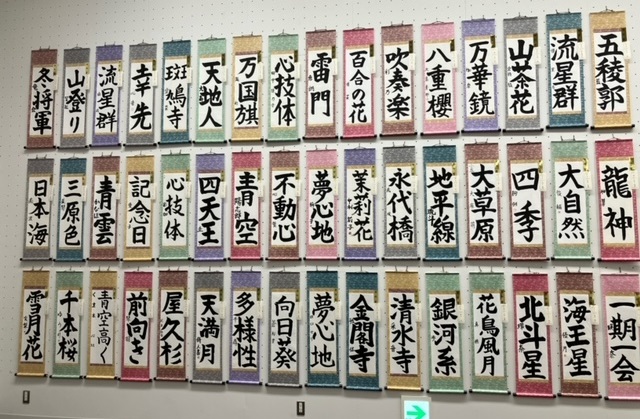 五稜郭
流星群
山茶花
万華鏡
八重櫻
吹奏楽
百合の花
雷門
心技体
万国旗
天地人
斑鳩寺
幸先
流星群
山登り
冬将軍
龍神
大自然
四季
大草原
地平線
永代橋
茉莉花
夢心地
不動心
青空
四天王
心技体
記念日
青雲
三原色
日本海
一期一会
海王星
北斗星
花鳥風月
銀河系
清水寺
金閣寺
夢心地
向日葵
多様性
天満月
屋久杉
前向き
青空高く
千本桜
雪月花